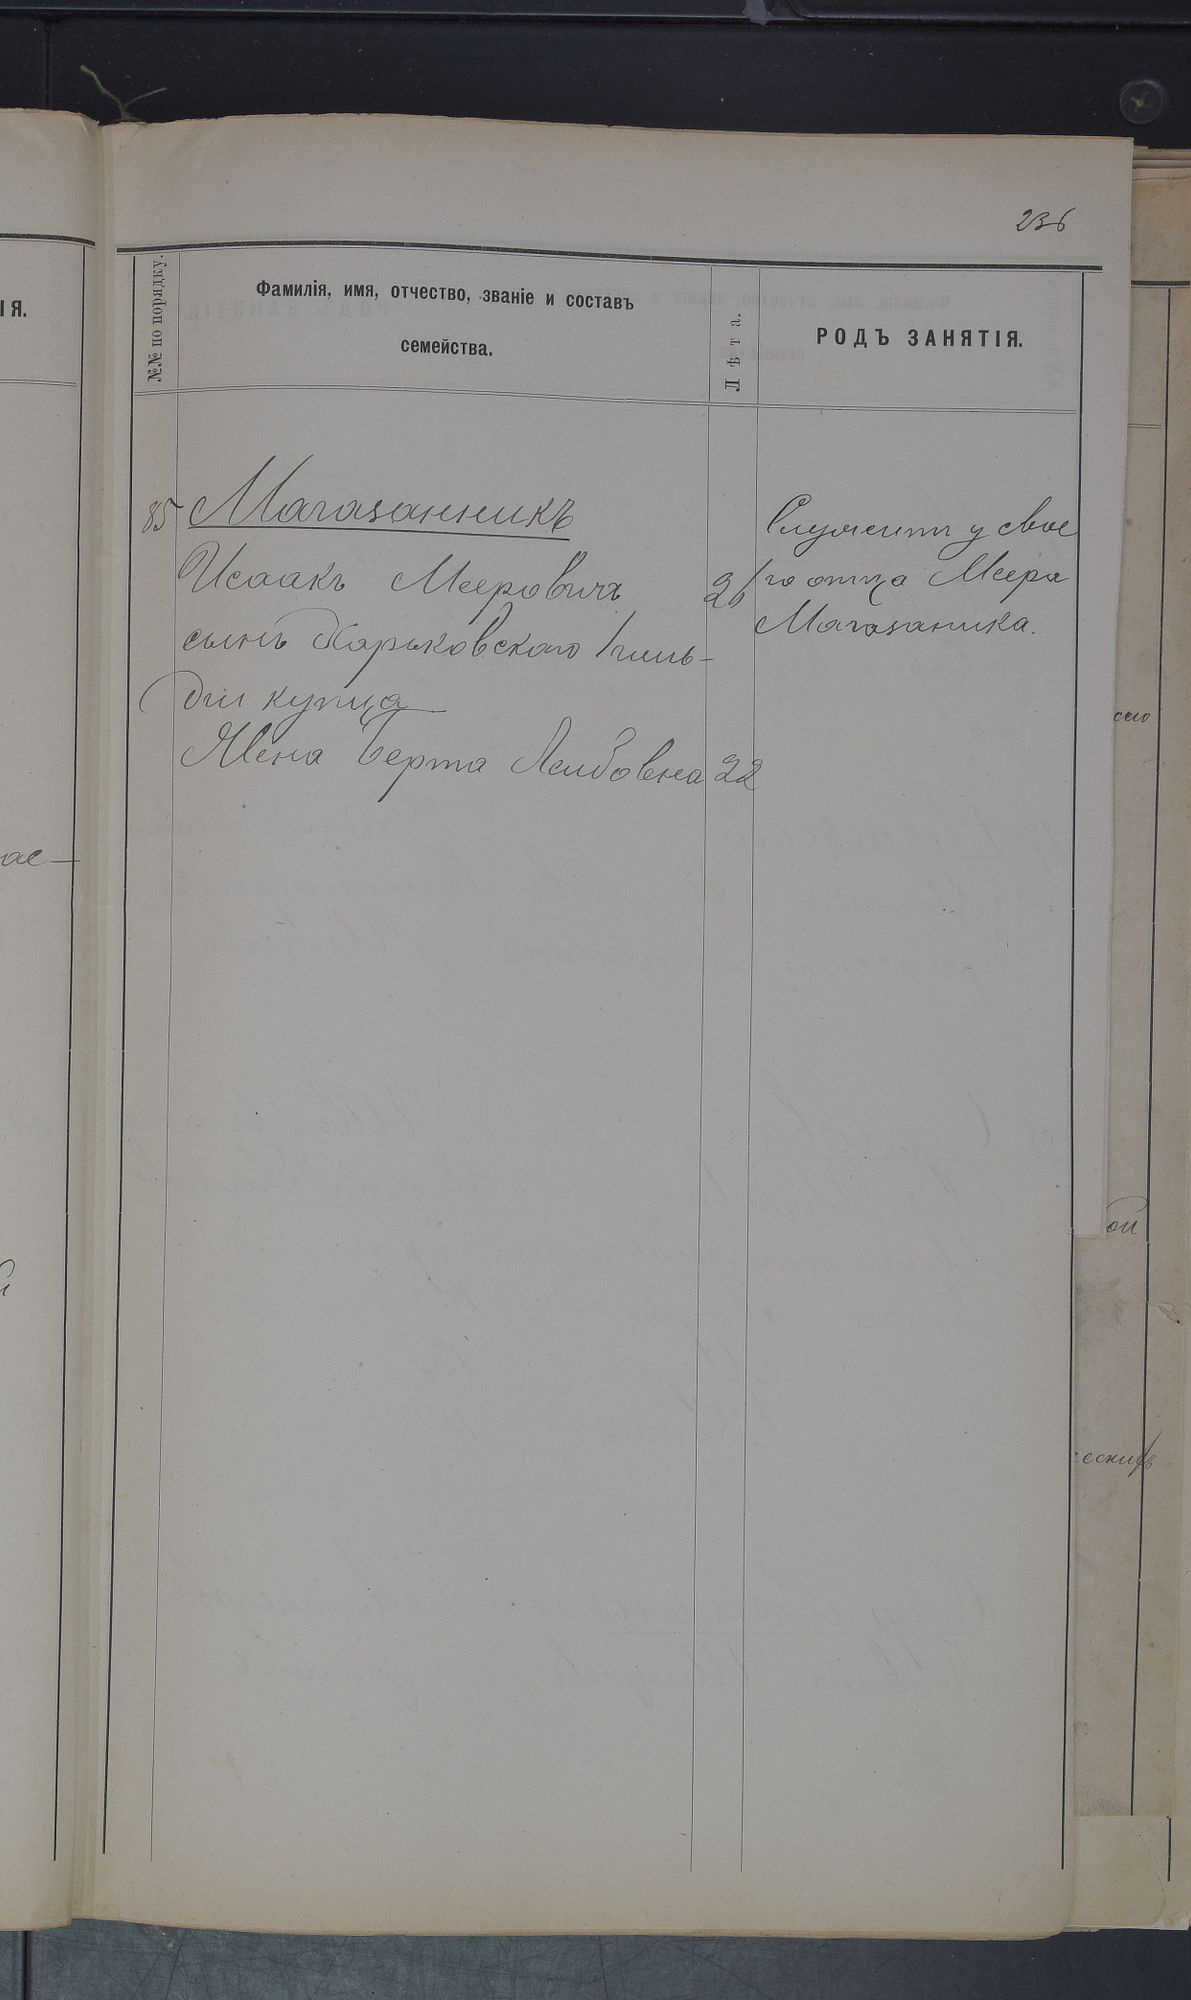 236
№№ по порядку.
Фамилія, имя, отчество, званіе и составъ
семейства.
Лѣта.
РОДЪ ЗАНЯТІЯ.
85 Магазанникъ
Исаакъ Мееровичъ 26
сынъ Харьковскаго 1 гиль-
діи купца
Жена Берта Лейбовна 22
Служитъ у свое
го отца Меера
Магазаника.
ІЯ.
ае-
ой